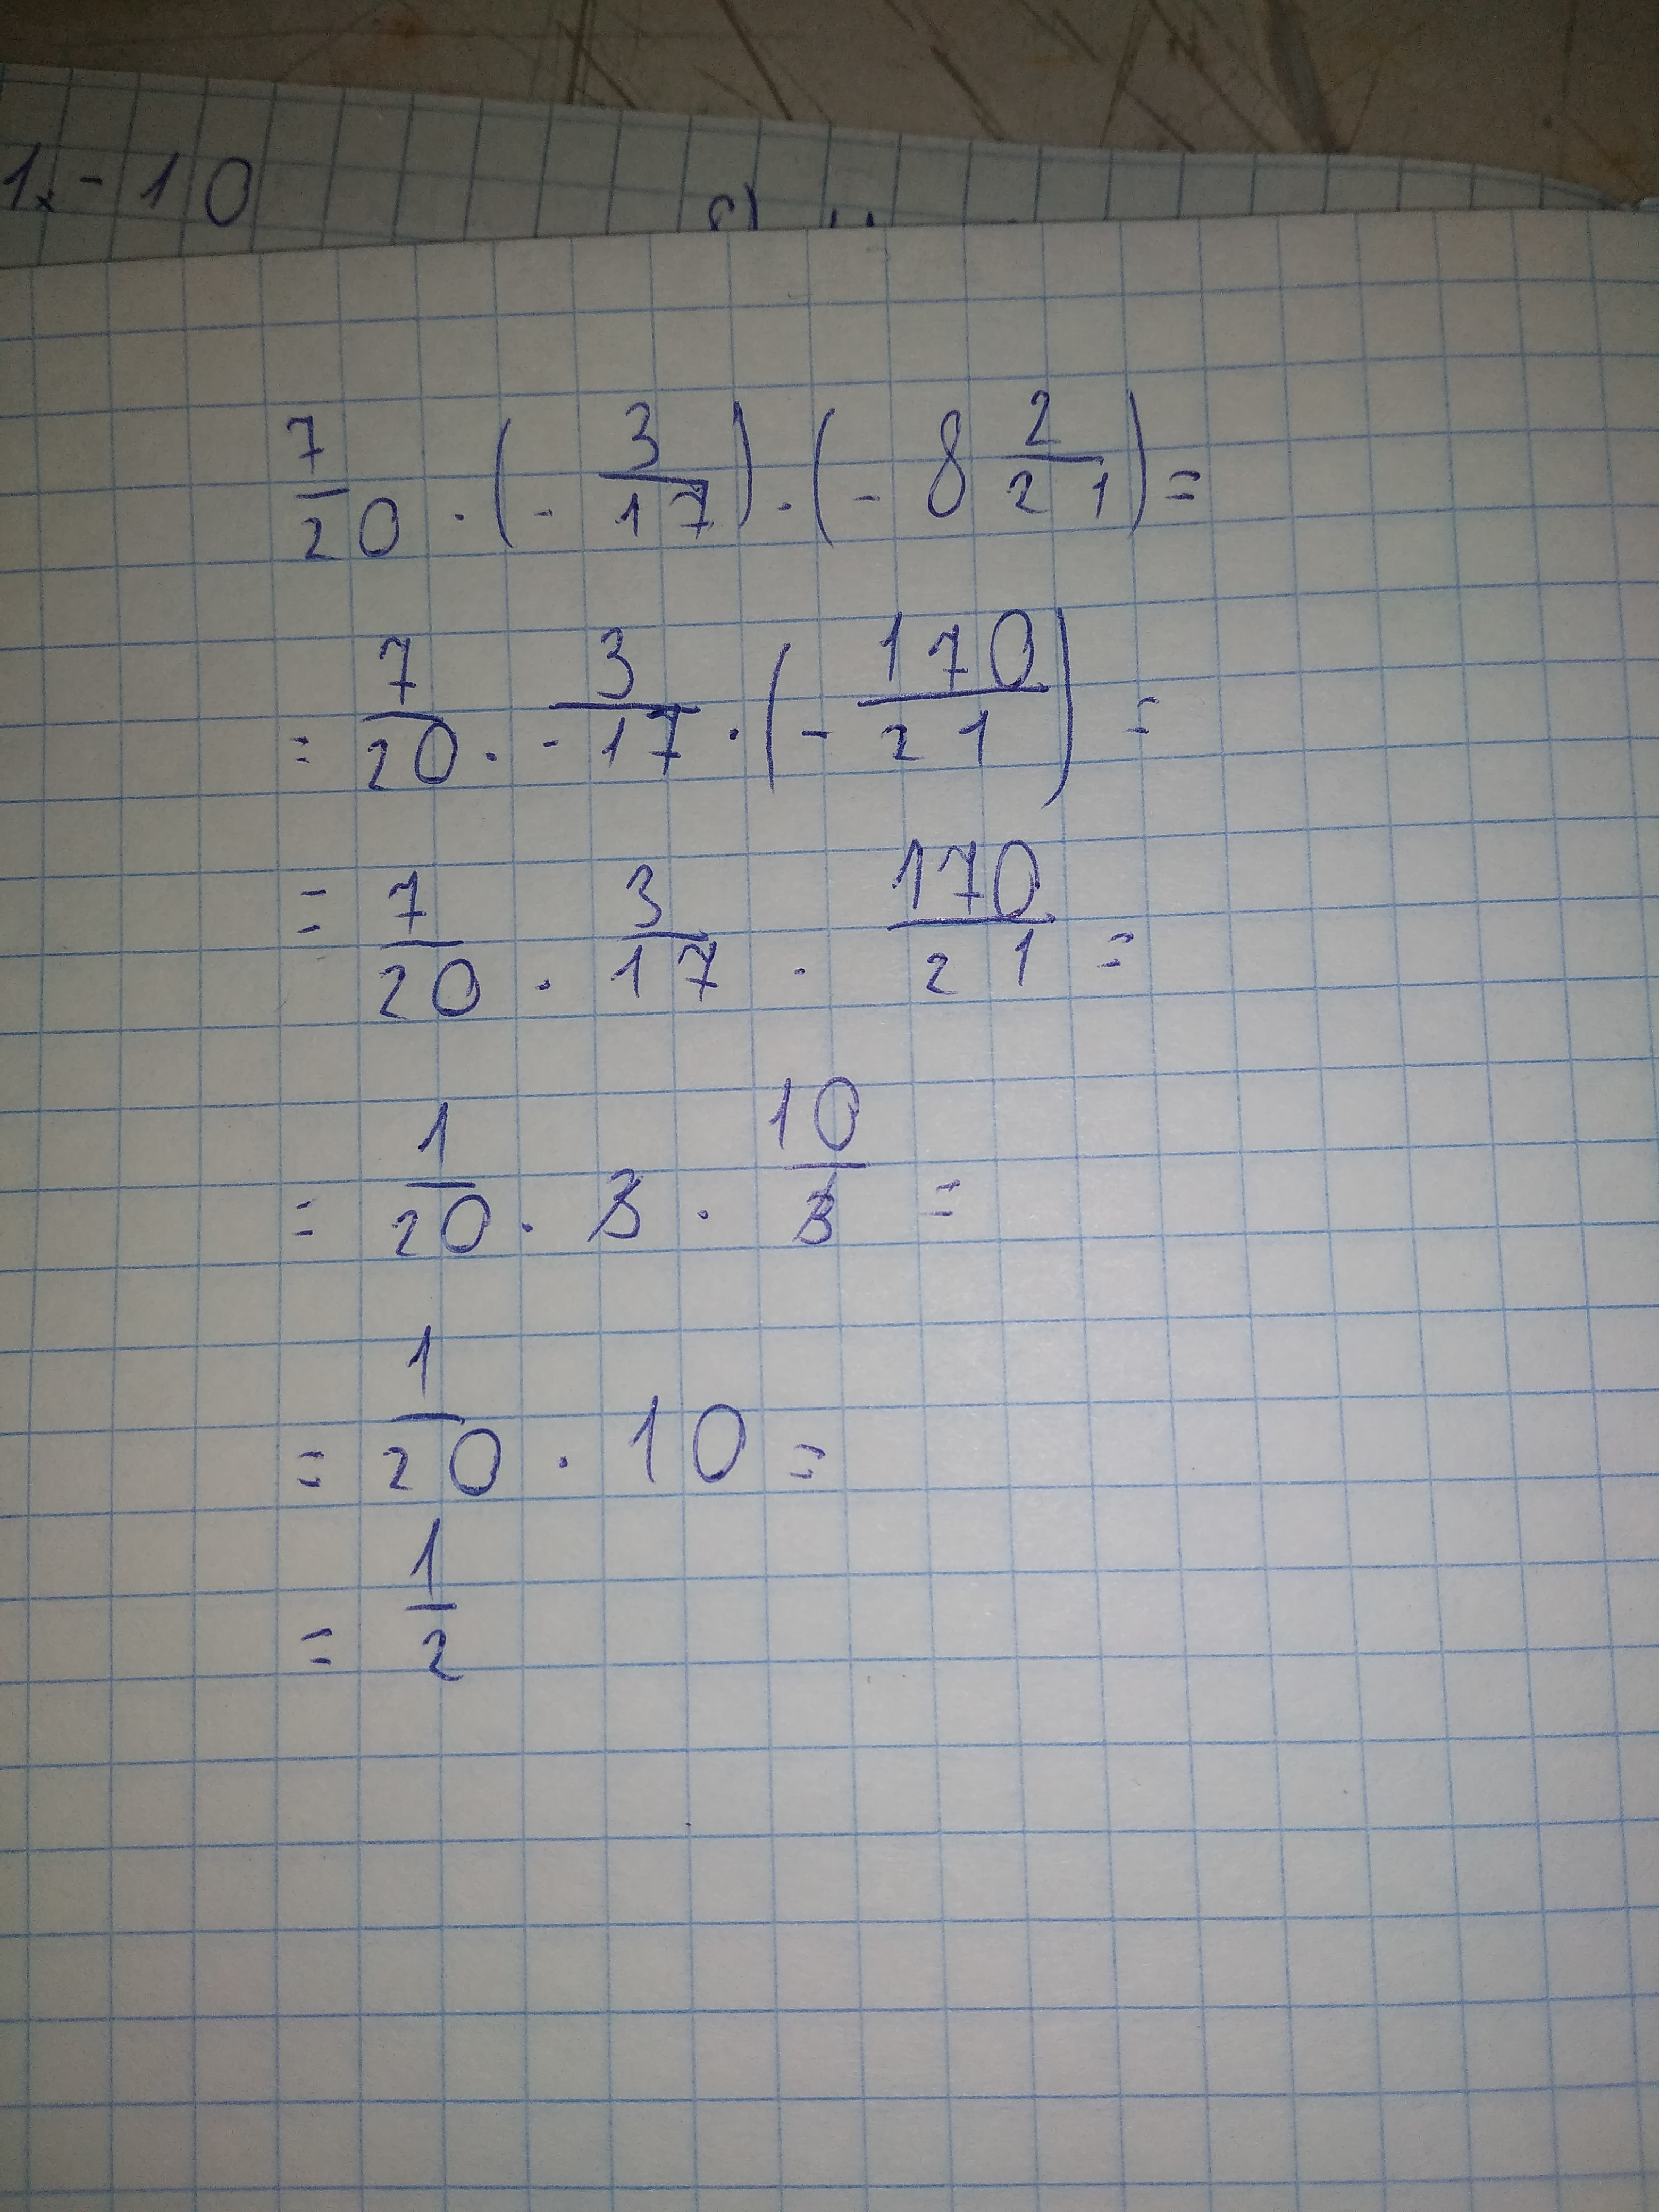 1x - 10
7/20 · (- 3/17) · (- 8 2/21) =
= 7/20 · 3/-17 · (- 170/21) =
= 7/20 · 3/17 · 170/21 =
= 1/20 · 3 · 10/3 =
= 1/20 · 10 =
= 1/2